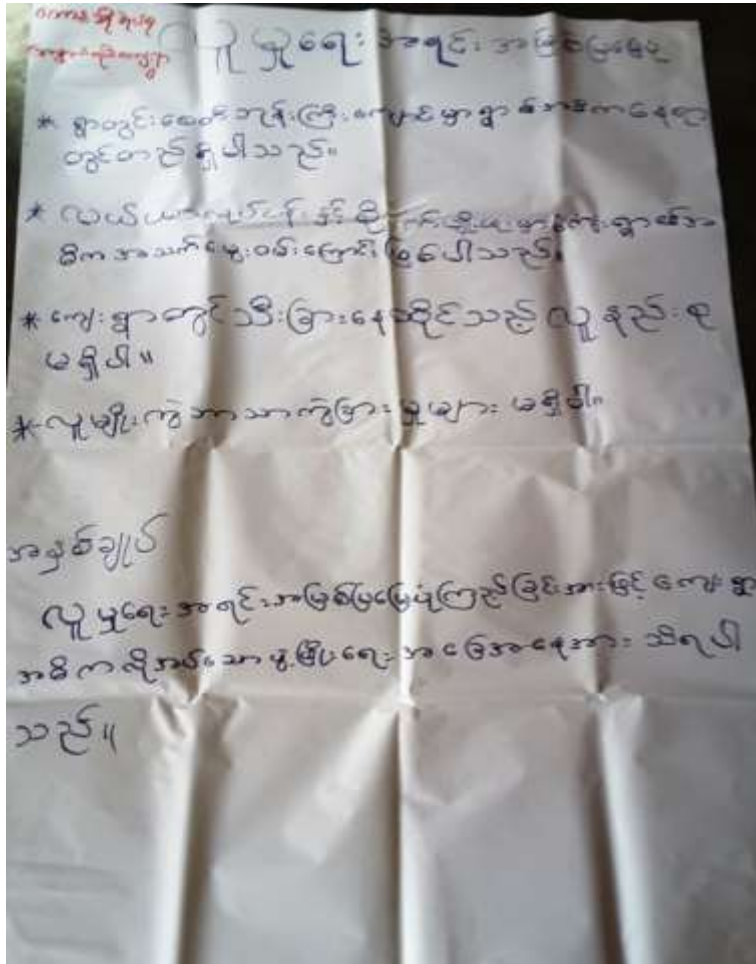 လူမှုရေး အရင်းအမြစ်ပြမြေပုံ
* ရွာတွင်းစေတီဘုန်းကြီးကျောင်းမှာ ရွာ၏အဓိကနေရာ
တွင်တည်ရှိပါသည်။
* လယ်ယာလုပ်ငန်းနှင့် စိုက်ပျိုးရေးမှာ ကျေးရွာ၏အ
ဓိကအသက်မွေးဝမ်းကျောင်းဖြစ်ပါသည်။
* ကျေးရွာတွင်သီးခြားနေထိုင်သည့် လူနည်းစု
မရှိပါ။
* လူမျိုးကွဲဘာသာကွဲပြားမှုများ မရှိပါ။
အနှစ်ချုပ်
လူမှုရေးအရင်းအမြစ်ပြမြေပုံကြည့်ခြင်းအားဖြင့် ကျေးရွာ
အဓိကလိုအပ်သောဖွံ့ဖြိုးရေးအခြေအနေအား သိရပါ
သည်။